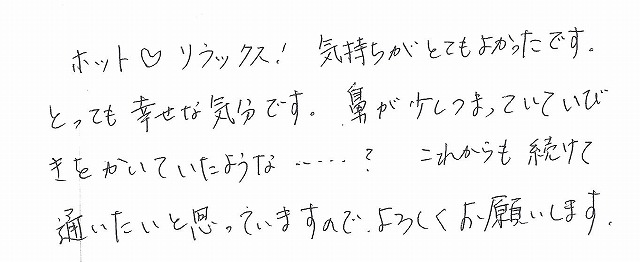 ホット♡リラックス! 気持ちがとてもよかったです。
とっても幸せな気分です。鼻が少しつまっていていび
きをかいていたような……? これからも続けて
通いたいと思っていますので、よろしくお願いします。